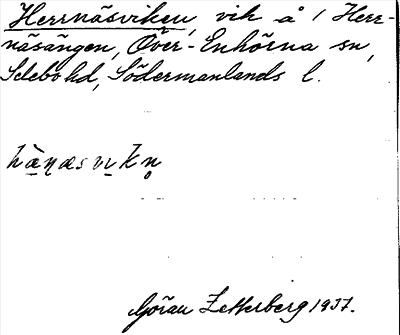 Herrnäsviken, vik å / Herr-
näsängen, Över-Enhörna sn,
Selebo hd, Södermanlands l.
hä̀ṇæsvikṇ
Göran Zetterberg 1937.